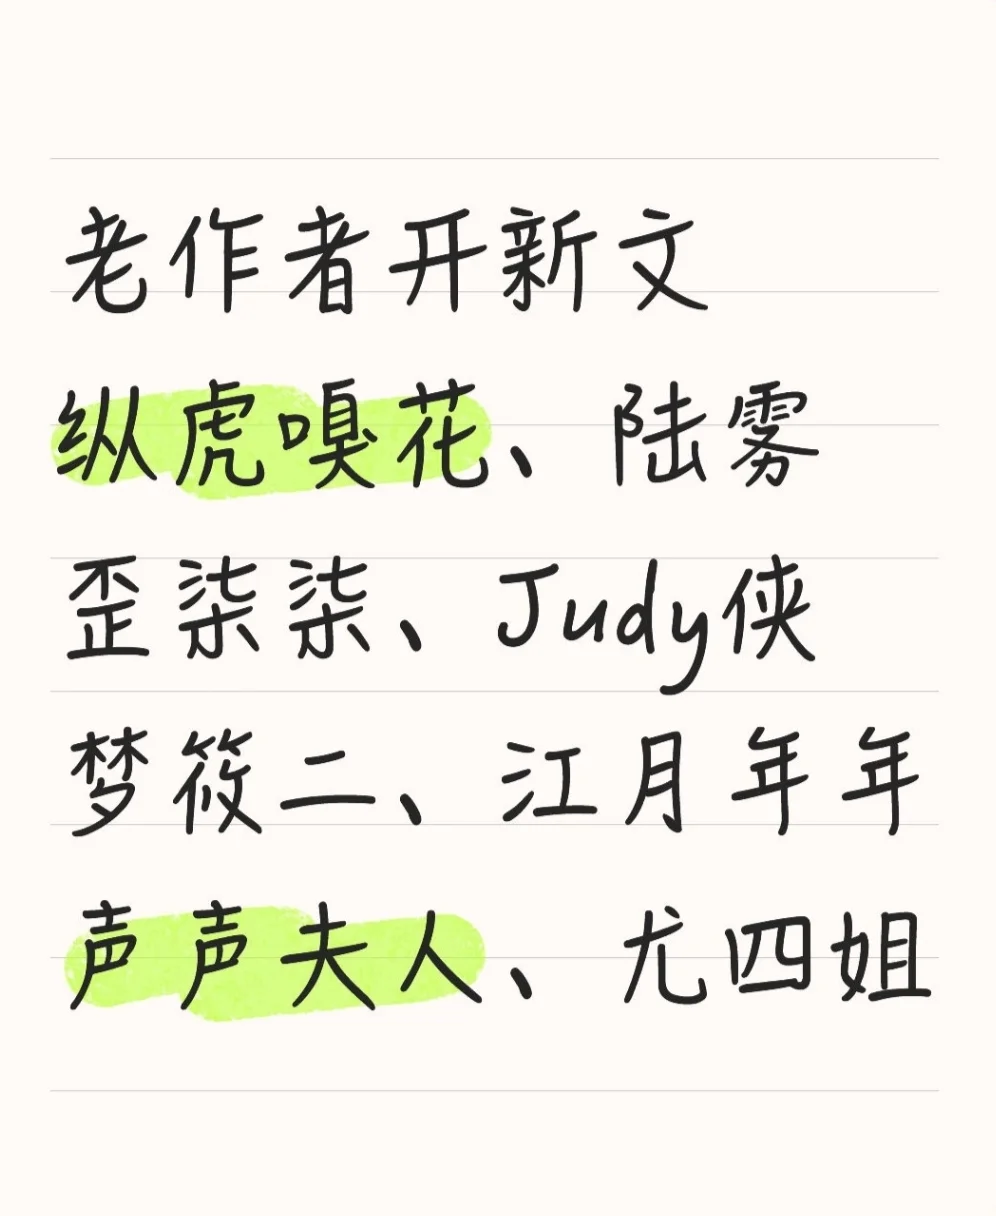 老作者开新文
纵虎嗅花、陆雾
歪柒柒、Judy侠
梦筱二、江月年年
声声夫人、尤四姐